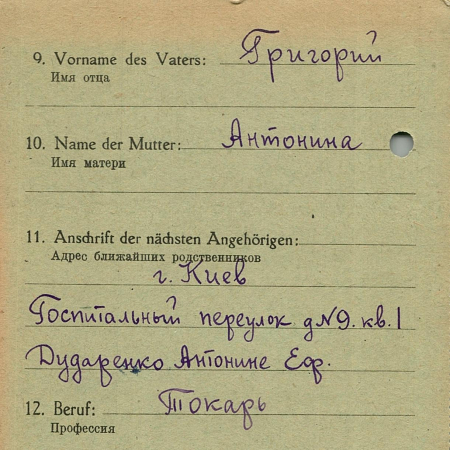 9. Vorname des Vaters: Григорий
Имя отца
10. Name der Mutter: Антонина
Имя матери
11. Anschrift der nächsten Angehörigen:
Адрес ближайших родственников
г. Киев
Госпитальный переулок д№9. кв. 1
Дударенко Антонине Еф.
12. Beruf: Токарь
Профессия